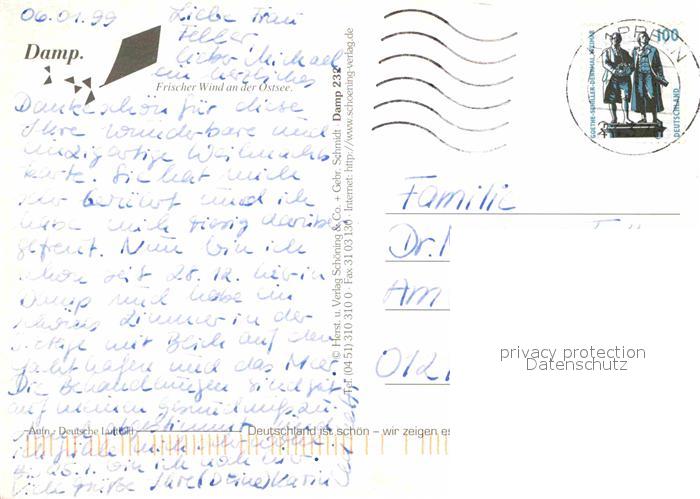 06.01.99 Liebe Frau
Feller
lieber Michael
ein herzliches
Dankeschön für diese
Ihre wunderbare und
einzigartige Weihnachts
karte. Sie hat mich
sehr berührt und ich
habe mich riesig darüber
gefreut. Nun bin ich
schon seit 28.12. hier in
Damp und habe ein
schönes Zimmer in der
mit Blick auf den
Yachthafen und das Meer.
Die Behandlungen sind gut
auf meinen Gesundheitszu
abgestimmt
bin ich noch hier.
Viele Grüße Ihre (Deine) Karin
Damp.
Frischer Wind an der Ostsee.
Aufn.: Deutsche Luftbild
Deutschland ist schön – wir zeigen es
© Herst. u. Verlag Schöning & Co. + Gebr. Schmidt Damp 232
Tel. (04 51) 310 310 0 · Fax 31 03 130 · Internet: http://www.schoening-verlag.de
100
GOETHE-SCHILLER-DENKMAL WEIMAR
DEUTSCHLAND
Familie
Dr.
Am
012
privacy protection
Datenschutz